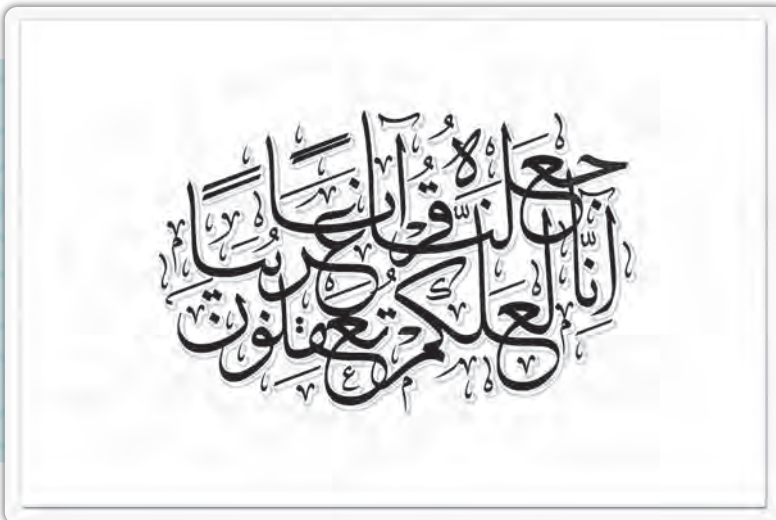 إنا جعلناه قرآنا عربيا
لعلكم تعقلون